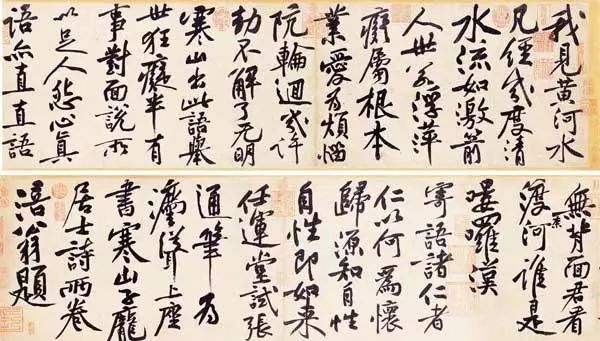 我見黃河水
凡經幾度清
水流如激箭
人世若浮萍
癡屬根本
業愛為煩惱
阬輪迴幾許
劫不解了无明
寒山出此語舉
世狂癡半有
事對面說所
以足人怨心真
語亦直直語
無背面君看
渡奈河誰是
嘍羅漢
寄語諸仁者
仁以何為懷
歸源知自性
自性即如来
任運堂試張
通筆為
灋聳上座
書寒山子龐
居士詩兩卷
涪翁題